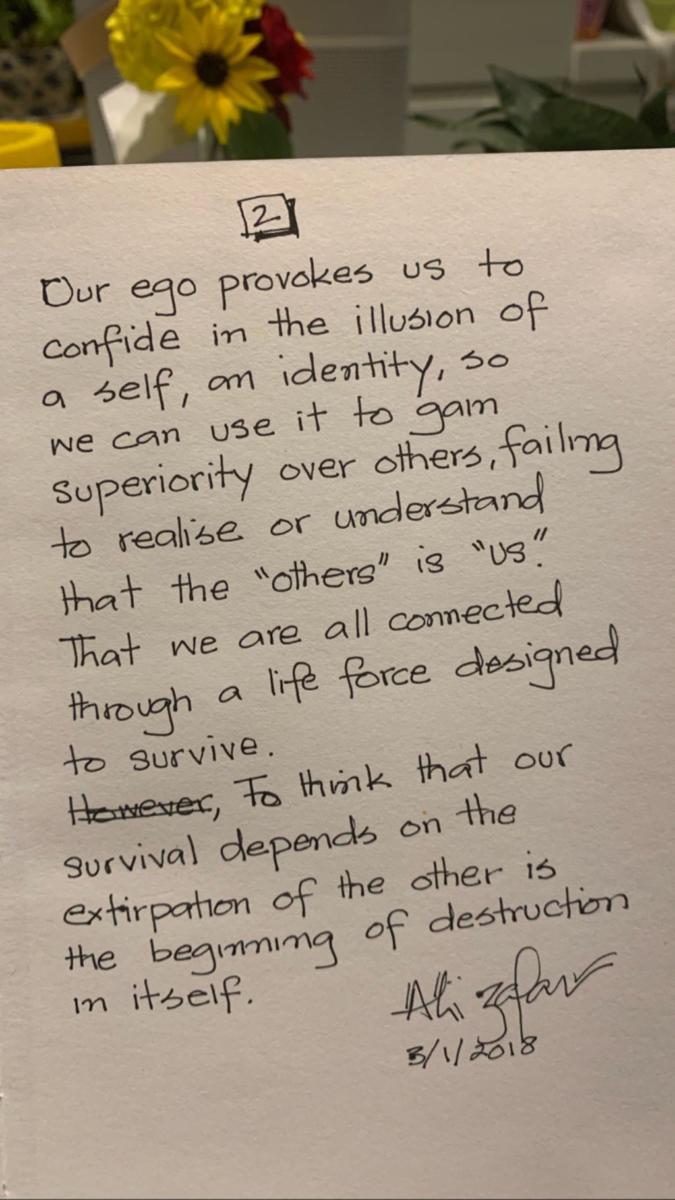 2
Our ego provokes us to
confide in the illusion of
a self, an identity, so
we can use it to gain
superiority over others, failing
to realise or understand
that the "others" is "us".
That we are all connected
through a life force designed
to survive.
However, To think that our
survival depends on the
extirpation of the other is
the beginning of destruction
in itself.
Ali Zafar
3/1/2018